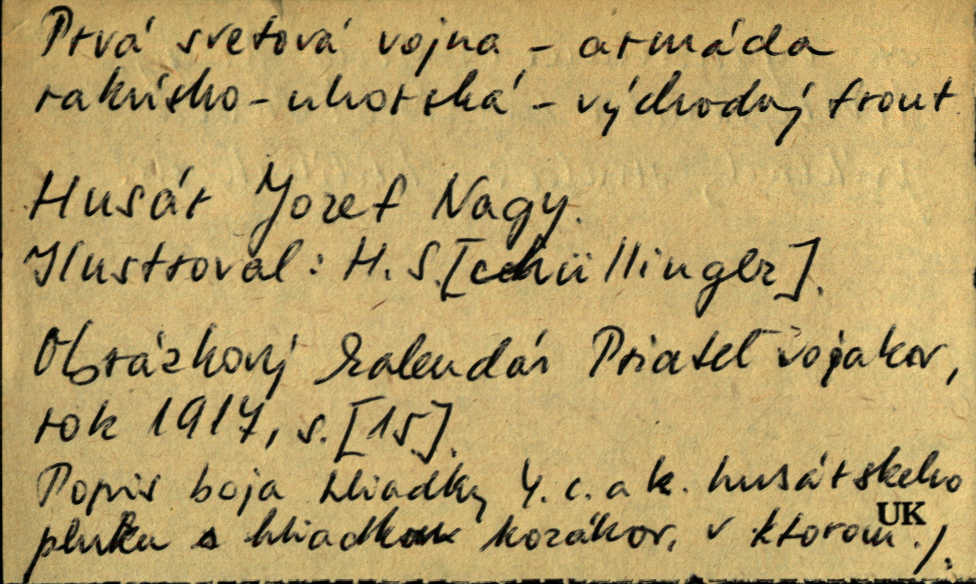 Prvá svetová vojna - armáda
rakúsko-uhorská - východný front
Husár Jozef Nagy.
Ilustroval: H. S.[chüllinger].
Obrázkový kalendár Priateľ vojakov,
rok 1917, s. [15].
Popis boja hliadky 4. c. a k. husárskeho
pluku s hliadkou kozákov, v ktorom ./.
UK